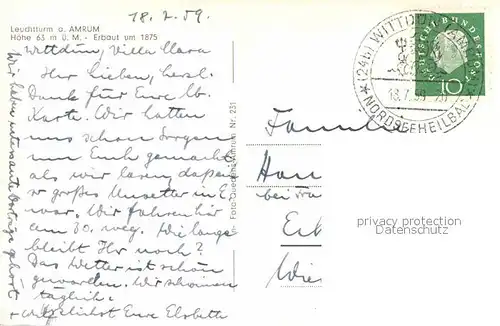 18.7.59.
Leuchtturm a. AMRUM
Höhe 63 m ü. M. - Erbaut um 1875
Wittdün, Villa Clara
Ihr Lieben, herzl.
Dank für Eure lb.
Karte. Wir hatten
uns schon Sorgen
um Euch gemacht
als wir lasen, dass
so großes Unwetter in E.
war. Wir fahren hier
am 30. weg. Wie lange
bleibt Ihr noch?
Das Wetter ist schön
geworden. Wir schwimmen
täglich.
Eure Elsbeth
Wir haben interessante Vorträge gehört
Foto Quedens Amrum, Nr. 231
(24b) WITTDÜN
NORDSEEHEILBAD
18.7.59
DEUTSCHE BUNDESPOST
10
Familie
bei
privacy protection
Datenschutz